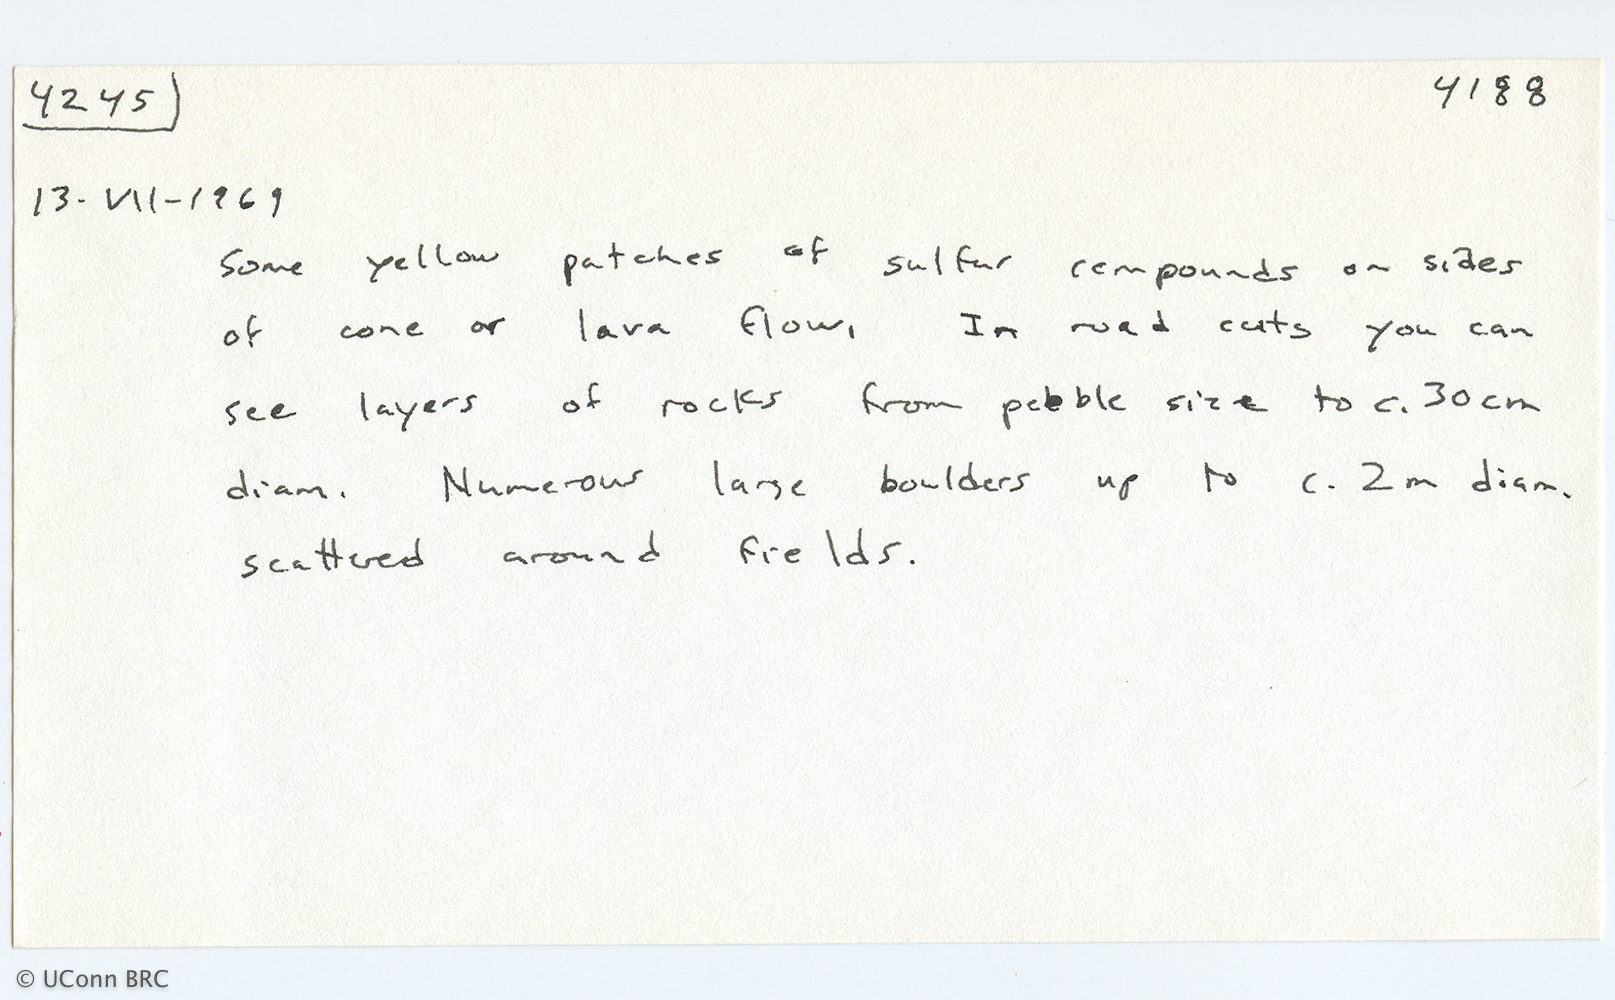 4245 4188
13-VII-1969
Some yellow patches of sulfur compounds on sides
of cone or lava flow. In road cuts you can
see layers of rocks from pebble size to c. 30cm
diam. Numerous large boulders up to c. 2m diam.
scattered around fields.
© UConn BRC